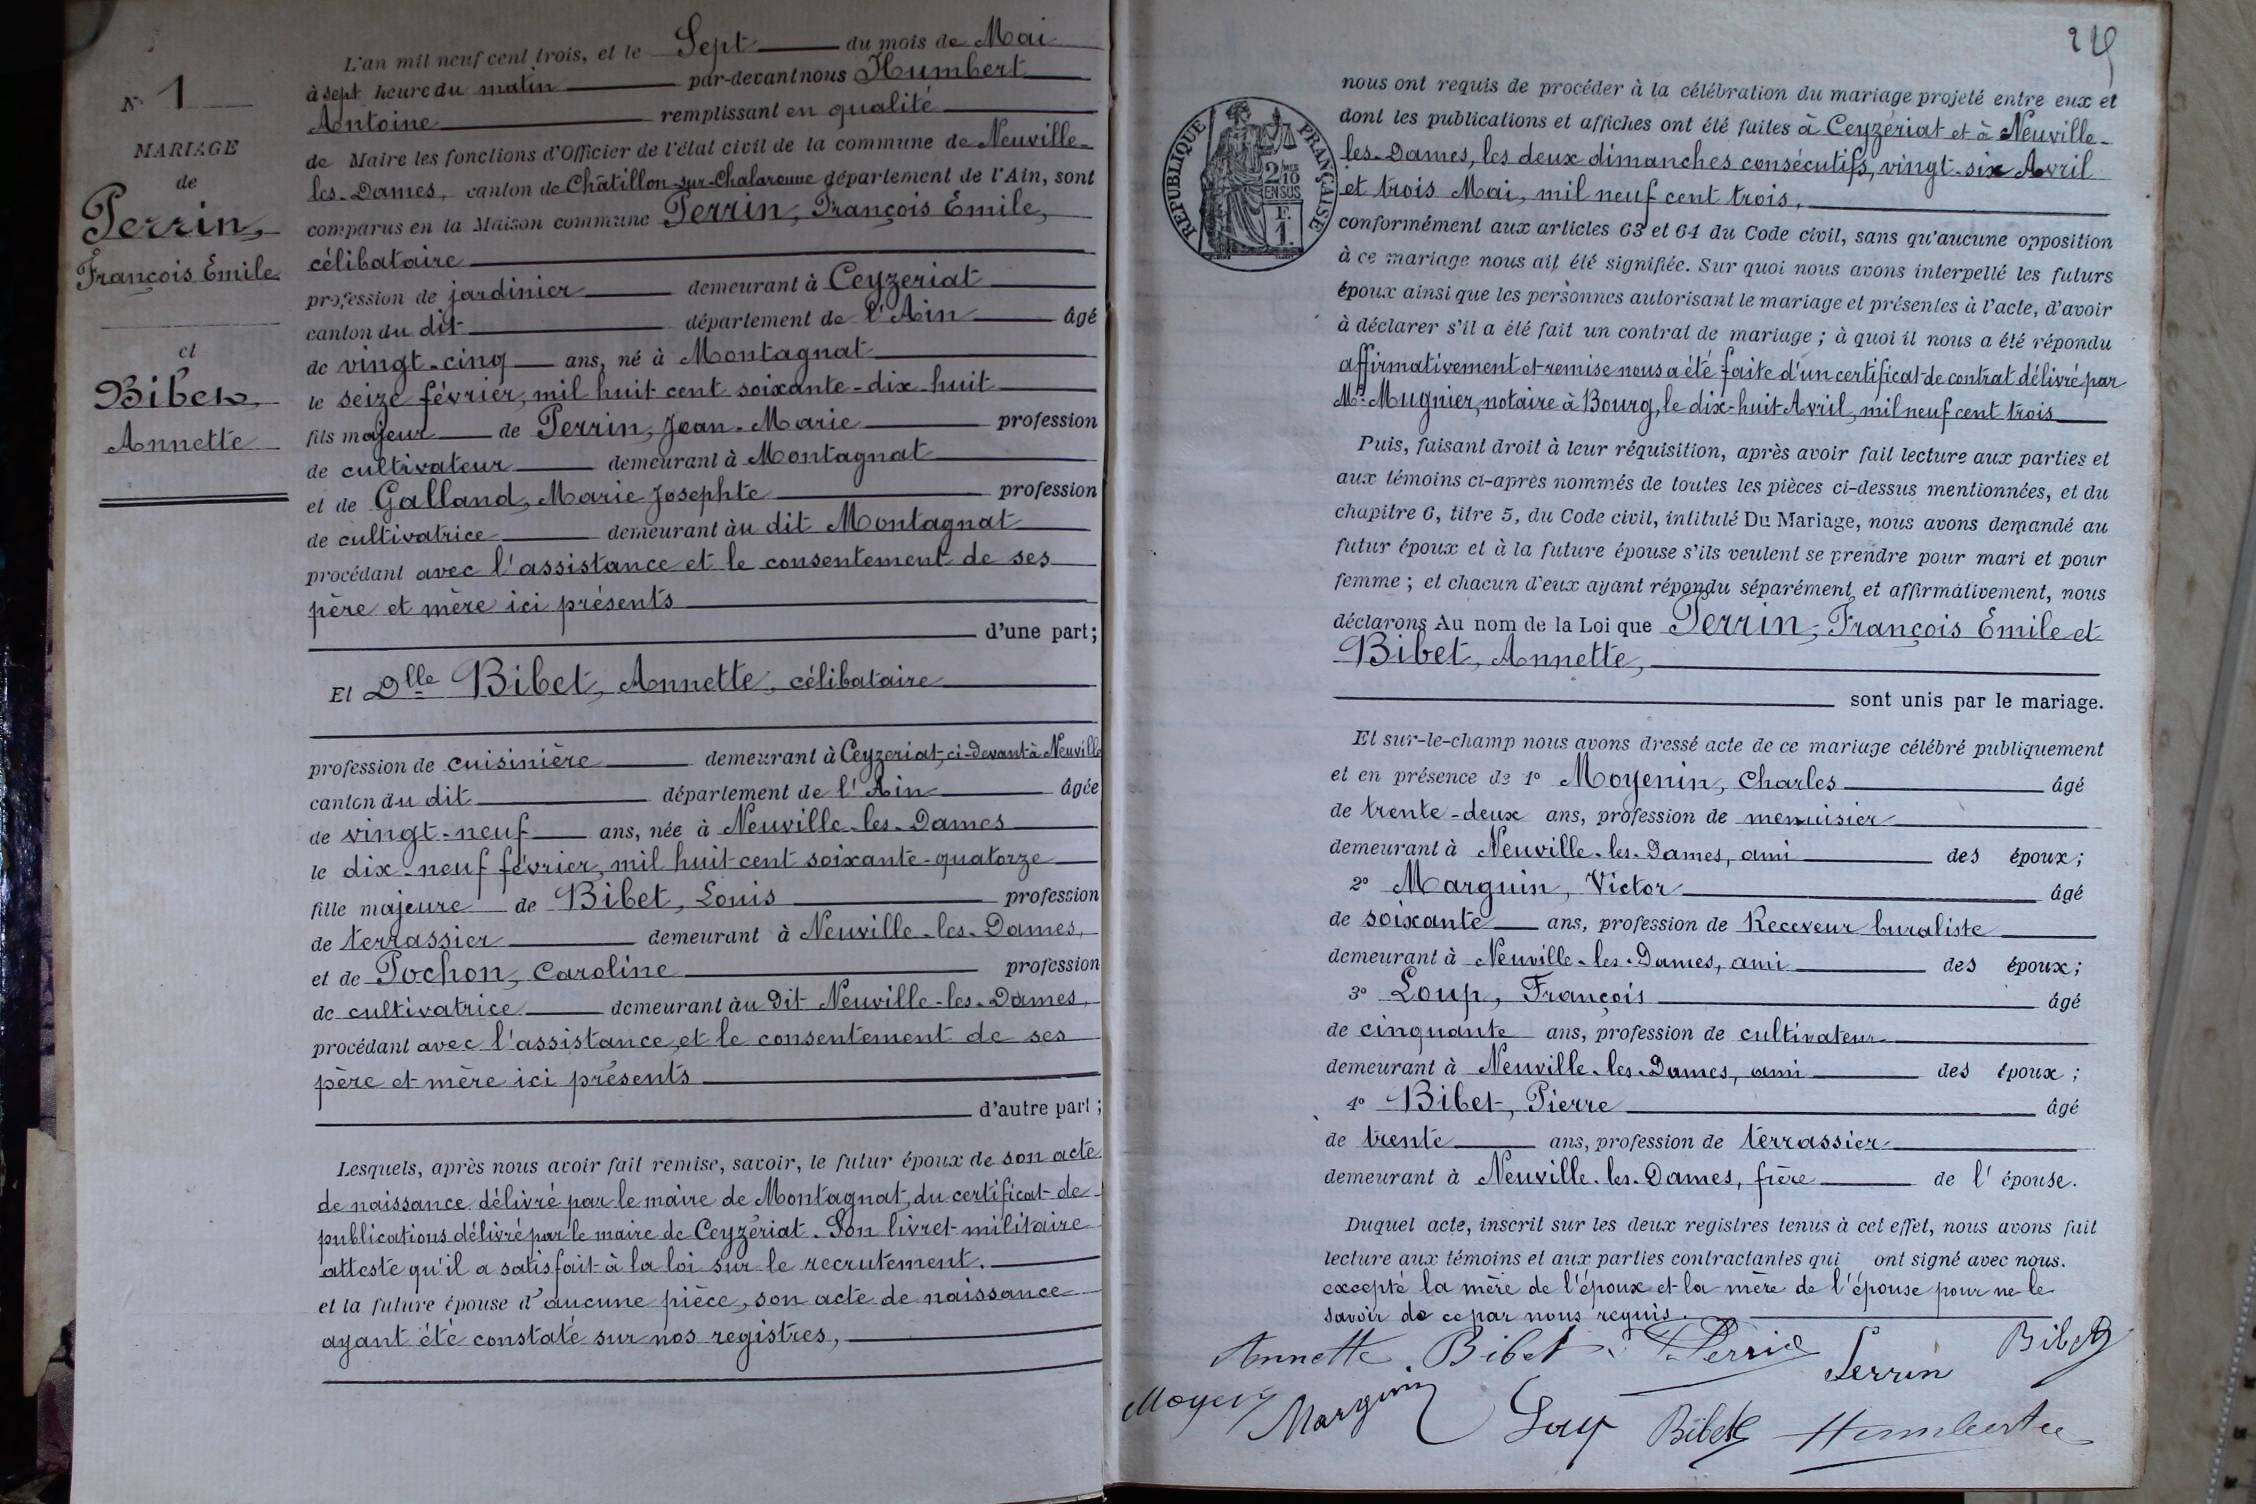 N° 1
MARIAGE
de
Perrin,
François Emile
et
Bibet,
Annette
L'an mil neuf cent trois, et le Sept du mois de Mai
à sept heure du matin par-devant nous Humbert
Antoine remplissant en qualité
de Maire les fonctions d'Officier de l'état civil de la commune de Neuville-
les-Dames, canton de Châtillon-sur-Chalaronne département de l'Ain, sont
comparus en la Maison commune Perrin, François Emile,
célibataire
profession de jardinier demeurant à Ceyzeriat
canton du dit département de l'Ain âgé
de vingt-cinq ans, né à Montagnat
le seize février, mil huit cent soixante-dix-huit
fils majeur de Perrin, Jean-Marie profession
de cultivateur demeurant à Montagnat
et de Galland, Marie Josephte profession
de cultivatrice demeurant àu dit Montagnat
procédant avec l'assistance et le consentement de ses
père et mère ici présents
d'une part;
Et Dlle Bibet, Annette, célibataire
profession de cuisinière demeurant à Ceyzeriat, ci-devant à Neuville
canton du dit département de l'Ain âgée
de vingt-neuf ans, née à Neuville-les-Dames
le dix-neuf février, mil huit-cent soixante-quatorze
fille majeure de Bibet, Louis profession
de terrassier demeurant à Neuville-les-Dames,
et de Pochon, Caroline profession
de cultivatrice demeurant àu dit Neuville-les-Dames,
procédant avec l'assistance et le consentement de ses
père et mère ici présents
d'autre part;
Lesquels, après nous avoir fait remise, savoir, le futur époux de son acte
de naissance délivré par le maire de Montagnat, du certificat de
publications délivré par le maire de Ceyzériat. Son livret militaire
atteste qu'il a satisfait à la loi sur le recrutement.
et la future épouse d'aucune pièce, son acte de naissance
ayant été constaté sur nos registres,
REPUBLIQUE FRANÇAISE
2/10
EN SUS
F.
1.
nous ont requis de procéder à la célébration du mariage projeté entre eux et
dont les publications et affiches ont été faites à Ceyzériat et à Neuville-
les-Dames, les deux dimanches consécutifs, vingt-six Avril
et trois Mai, mil neuf cent trois,
conformément aux articles 63 et 64 du Code civil, sans qu'aucune opposition
à ce mariage nous ait été signifiée. Sur quoi nous avons interpellé les futurs
époux ainsi que les personnes autorisant le mariage et présentes à l'acte, d'avoir
à déclarer s'il a été fait un contrat de mariage; à quoi il nous a été répondu
affirmativement et remise nous a été faite d'un certificat de contrat délivré par
Me Mugnier, notaire à Bourg, le dix-huit Avril, mil neuf cent trois
Puis, faisant droit à leur réquisition, après avoir fait lecture aux parties et
aux témoins ci-après nommés de toutes les pièces ci-dessus mentionnées, et du
chapitre 6, titre 5, du Code civil, intitulé Du Mariage, nous avons demandé au
futur époux et à la future épouse s'ils veulent se prendre pour mari et pour
femme; et chacun d'eux ayant répondu séparément et affirmativement, nous
déclarons Au nom de la Loi que Perrin, François Emile et
Bibet, Annette,
sont unis par le mariage.
Et sur-le-champ nous avons dressé acte de ce mariage célébré publiquement
et en présence de 1° Moyenin, Charles âgé
de trente-deux ans, profession de menuisier
demeurant à Neuville-les-Dames, ami des époux;
2° Marguin, Victor âgé
de soixante ans, profession de Receveur buraliste
demeurant à Neuville-les-Dames, ami des époux;
3° Loup, François âgé
de cinquante ans, profession de cultivateur
demeurant à Neuville-les-Dames, ami des époux;
4° Bibet, Pierre âgé
de trente ans, profession de terrassier
demeurant à Neuville-les-Dames, frère de l'épouse.
Duquel acte, inscrit sur les deux registres tenus à cet effet, nous avons fait
lecture aux témoins et aux parties contractantes qui ont signé avec nous.
excepté la mère de l'époux et la mère de l'épouse pour ne le
savoir de ce par nous requis.
Annette Bibet Perrin Bibet
Marguin Loup Bibet